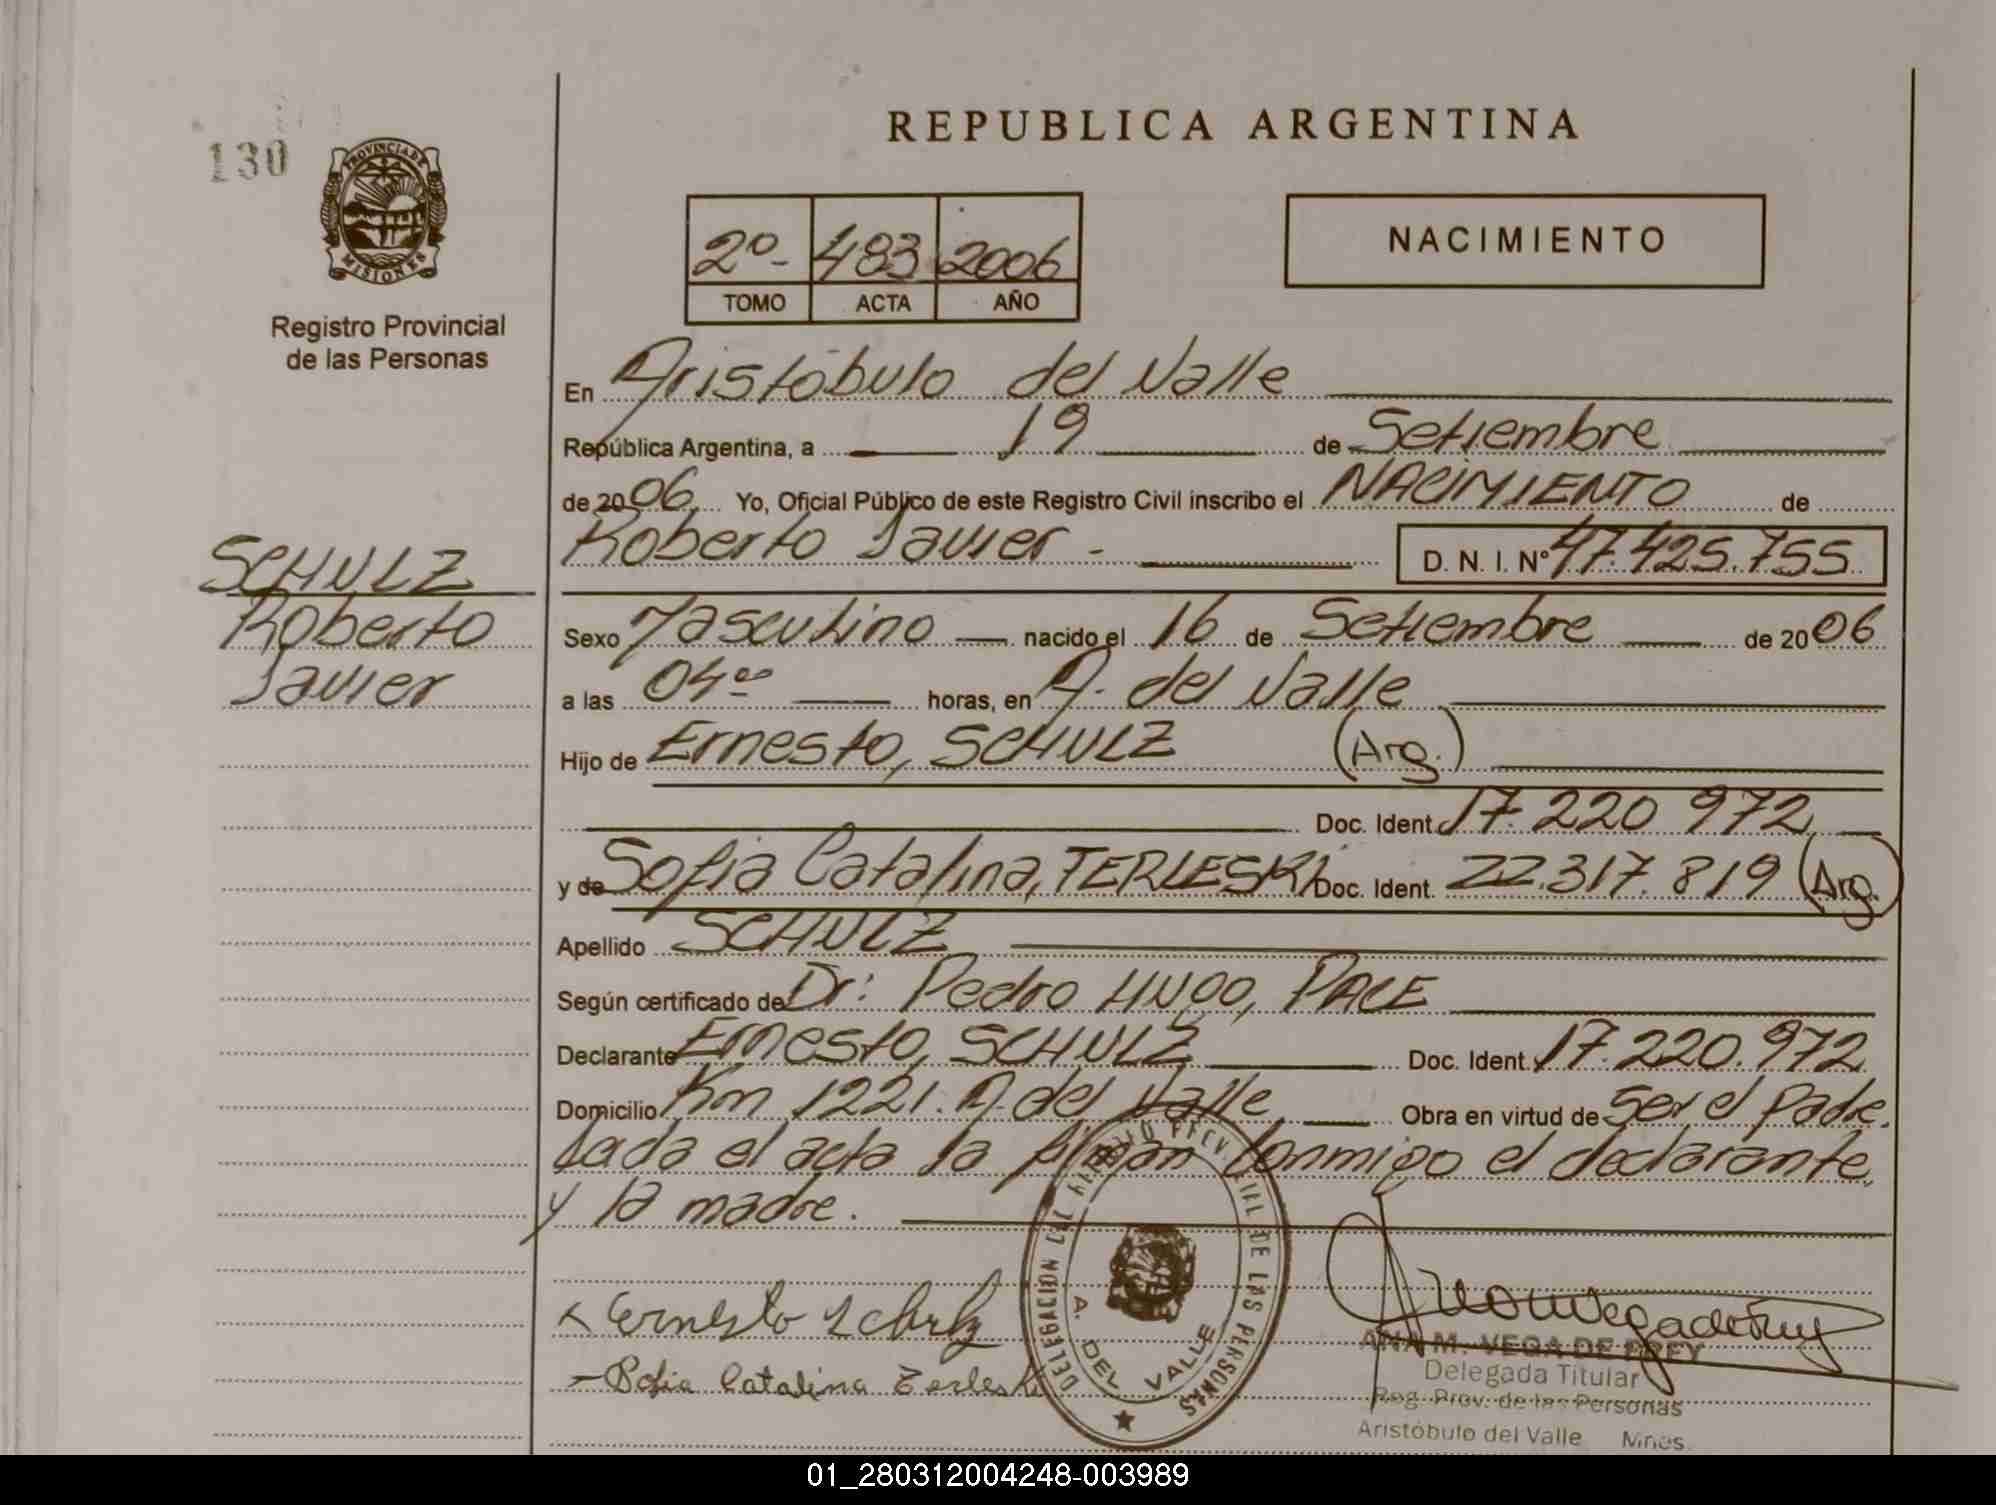 130
PROVINCIA DE
MISIONES
Registro Provincial
de las Personas
REPUBLICA ARGENTINA
2º- 483 2006
TOMO ACTA AÑO
NACIMIENTO
En Aristóbulo del Valle
República Argentina, a 19 de Setiembre
de 2006 Yo, Oficial Público de este Registro Civil inscribo el NACIMIENTO de
Roberto Javier - D. N. I. Nº 47.425.755
SCHULZ
Roberto
Javier
Sexo Masculino nacido el 16 de Setiembre de 2006
a las 04ºº horas, en A. del Valle
Hijo de Ernesto, SCHULZ (Arg.)
Doc. Ident. 17.220.972
y de Sofia Catalina, TERLESKI Doc. Ident. 22.317.819 (Arg.)
Apellido SCHULZ
Según certificado de Dr: Pedro HUGO, PACE
Declarante Ernesto, SCHULZ Doc. Ident. 17.220.972
Domicilio Km 1221. A. del Valle Obra en virtud de Ser el Padre.
Leida el acta la firman conmigo el declarante,
y la madre.
x Ernesto Schulz
- Sofia Catalina Terleski
DELEGACION DEL REGISTRO PROV. CIVIL DE LAS PERSONAS
A. DEL VALLE
ANA M. VEGA DE FREY
Delegada Titular
Reg. Prov. de las Personas
Aristóbulo del Valle Mnes.
01_280312004248-003989